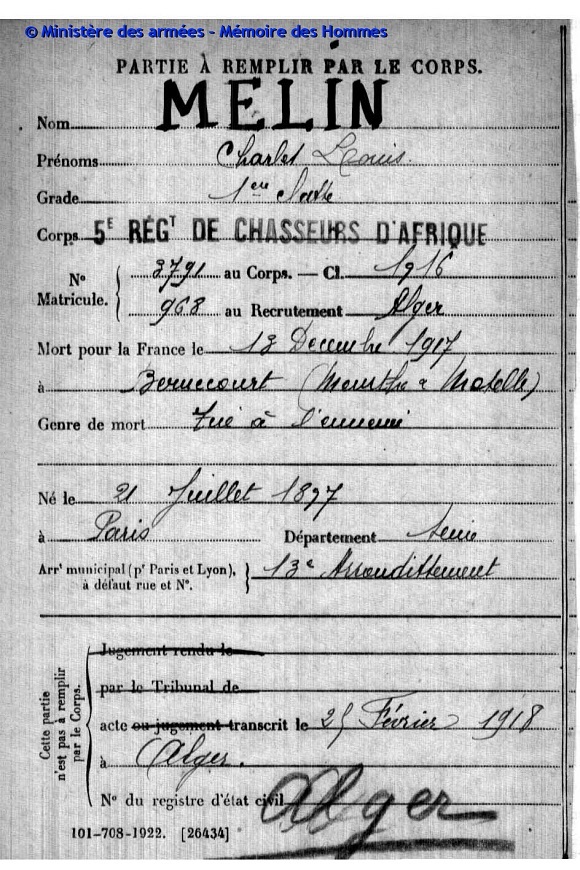 © Ministère des armées - Mémoire des Hommes
PARTIE À REMPLIR PAR LE CORPS.
Nom MELIN
Prénoms Charles Louis.
Grade 1ere classe
Corps 5E RÉGT DE CHASSEURS D'AFRIQUE
No Matricule. 3791 au Corps. — Cl. 1916
968 au Recrutement Alger
Mort pour la France le 13 Decembre 1917
à Bernecourt (Meurthe & Moselle)
Genre de mort Tué à l'ennemi
Né le 21 Juillet 1897
à Paris Département Seine
Arrt municipal (pr Paris et Lyon), à défaut rue et No. 13e Arrondissement
Cette partie n'est pas à remplir par le Corps.
Jugement rendu le
par le Tribunal de
acte ou jugement transcrit le 25 Février 1918
à Alger.
No du registre d'état civil Alger
101-708-1922. [26434]